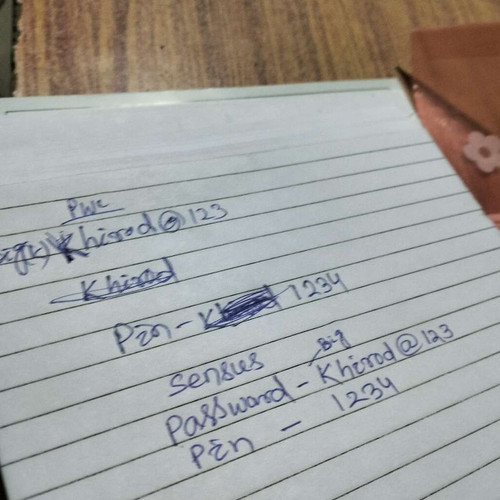 PWC
Khirod@123
Khirod
Pin - 1234
Sensus
Big
Password - Khirod@123
Pin - 1234